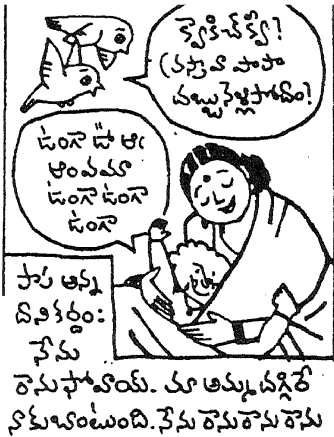 క్వికిచ్ క్వీ?
(వస్తావా పాపా
చబ్బునెళ్లిపోదాం?
ఉంగా ఊ ఆఁ
ఆంవమా
ఉంగా ఉంగా
ఉంగా
పాప అన్న
దానికర్థం:
నేను
రానుపోవోయ్. మా అమ్మదగ్గిరే
నాకుబాంటుంది. నేను రాను రాను రాను